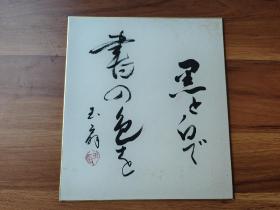 黒と白で
書の色を
玉舟